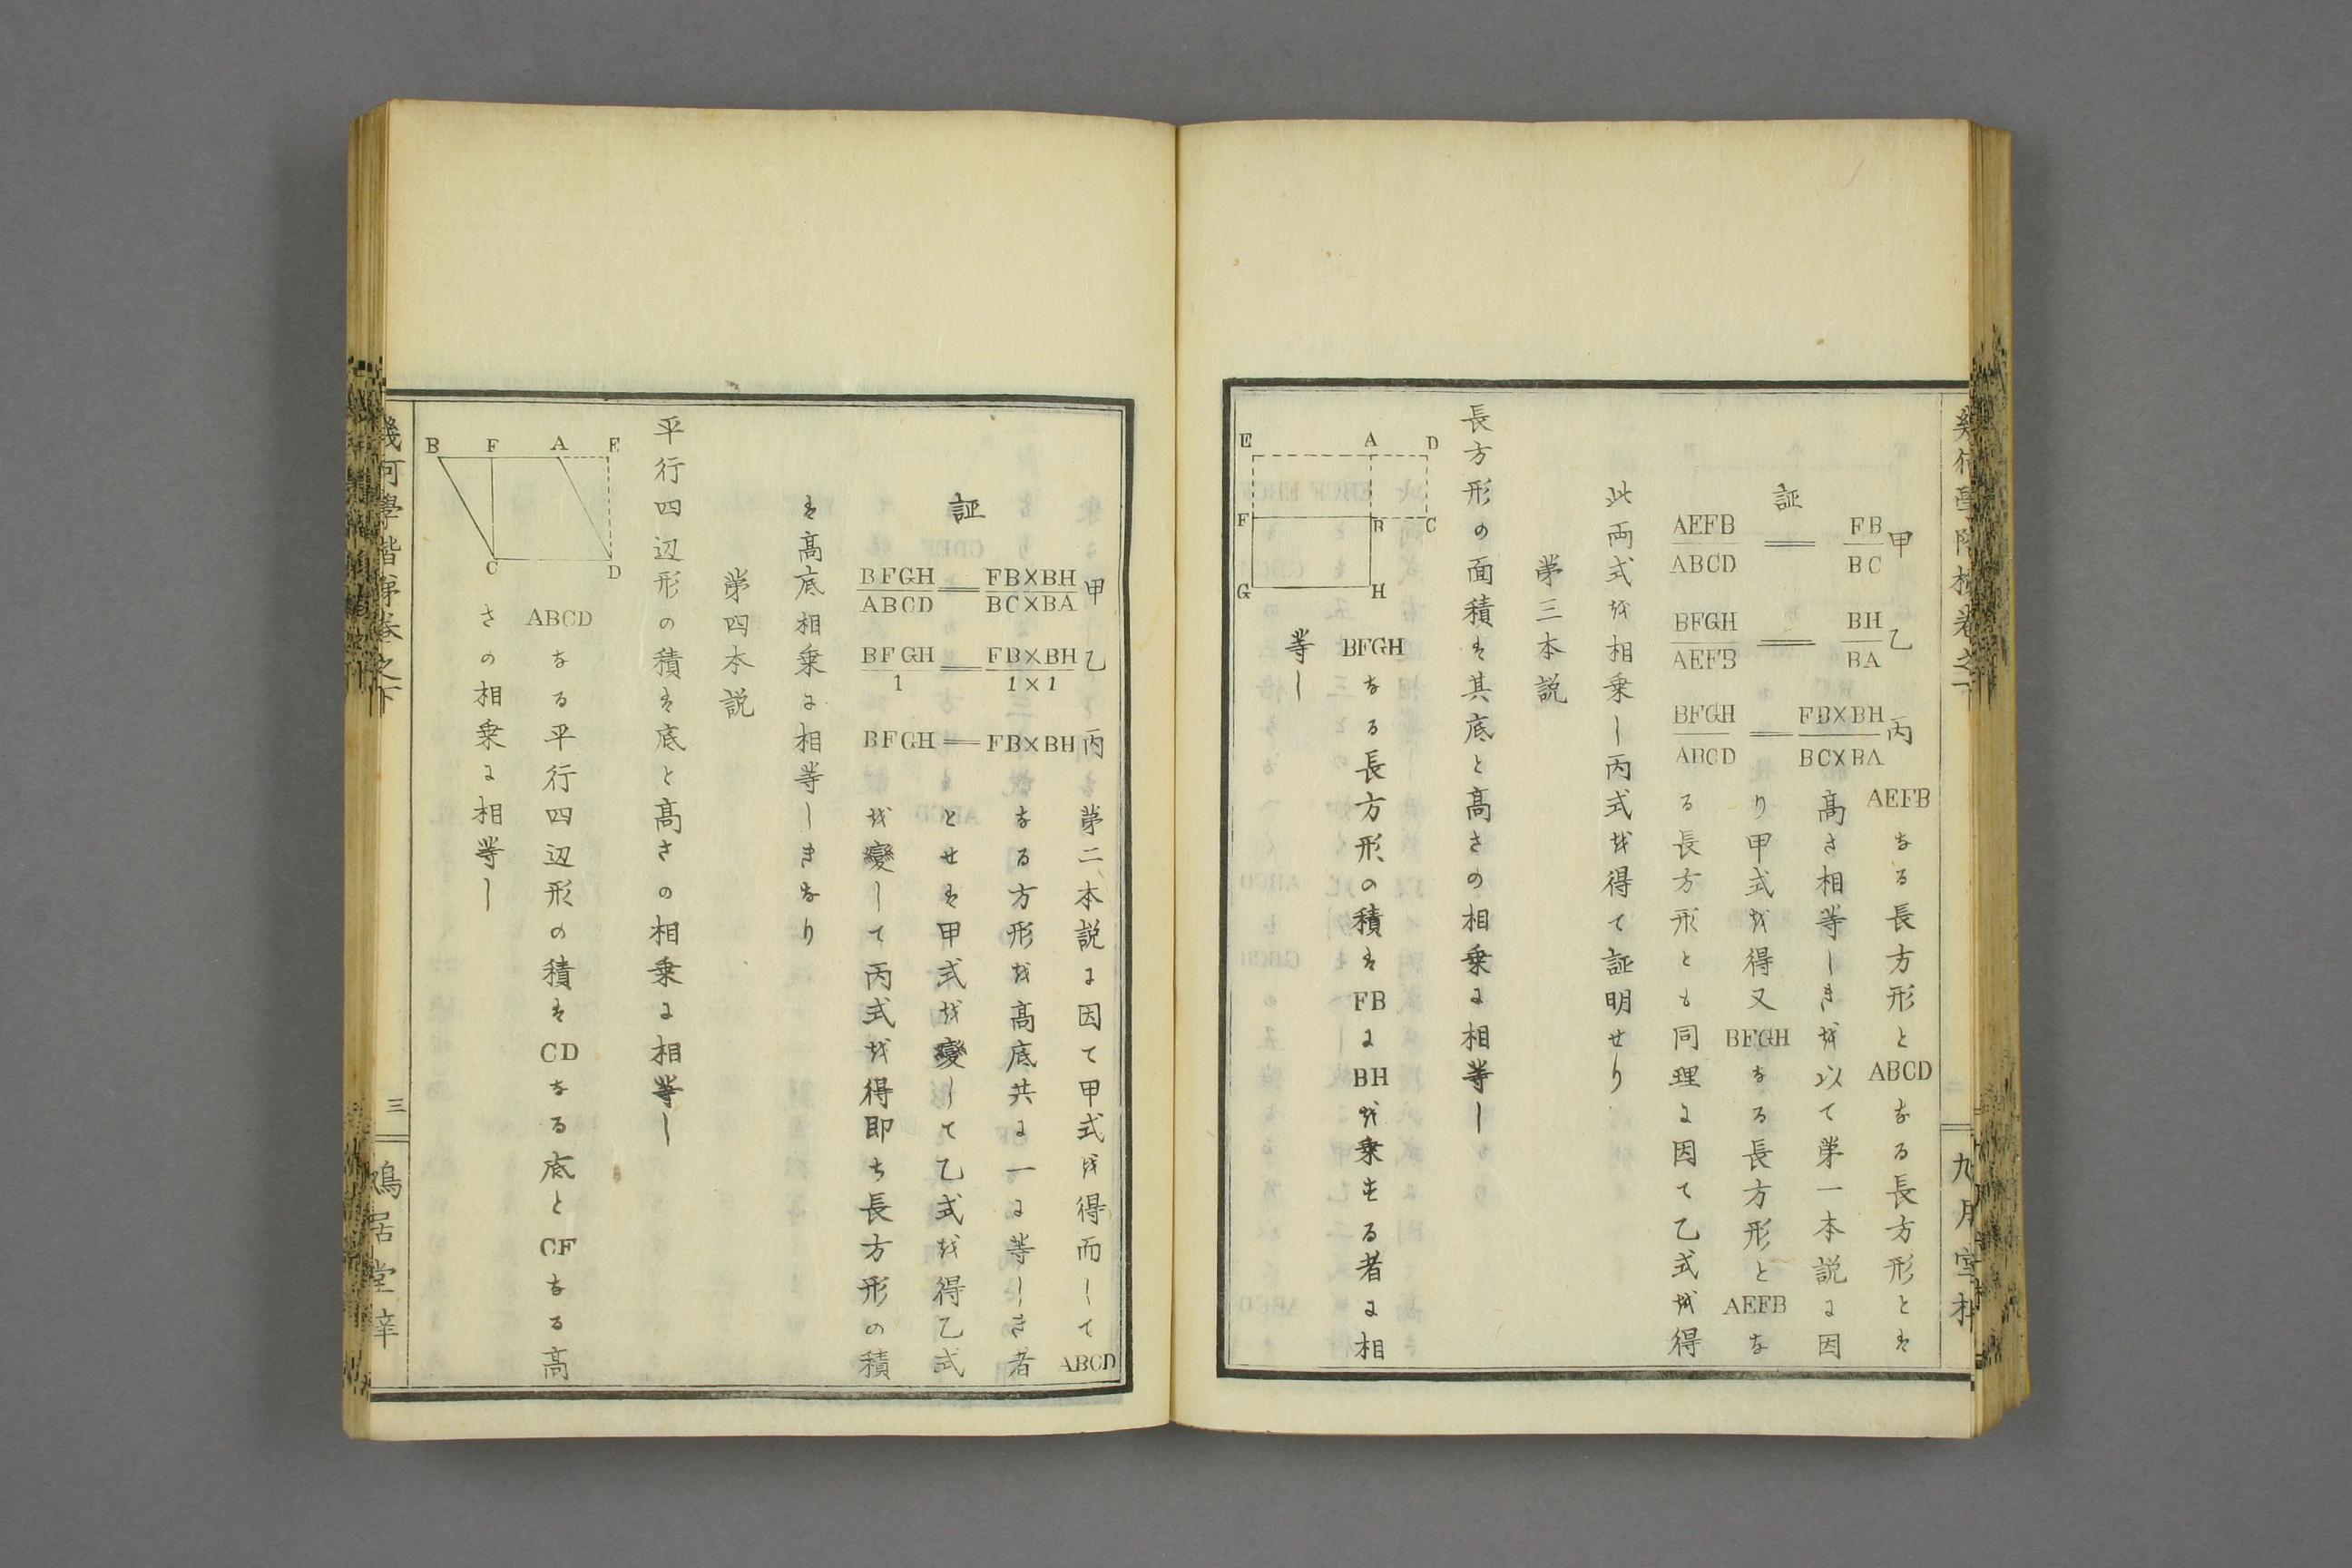 証
甲 FB/BC = AEFB/ABCD
乙 BH/BA = BFGH/AEFB
丙 FB×BH/BC×BA = BFGH/ABCD
AEFBなる長方形とABCDなる長方形とは
高さ相等しきを以て第一本説に因
り甲式を得又BFGHなる長方形とAEFBな
る長方形とも同理に因て乙式を得
此両式を相乗し丙式を得て証明せり
第三本説
長方形の面積は其底と高さの相乗に相等し
E A D
F B C
G H
BFGHなる長方形の積はFBにBHを乗する者に相
等し
証
甲 FB×BH/BC×BA = BFGH/ABCD
乙 FB×BH/1×1 = BFGH/1
丙 FB×BH = BFGH
第二本説に因て甲式を得而してABCD
なる方形を高底共に一に等しき者
とせは甲式を變して乙式を得乙式
を變して丙式を得即ち長方形の積
は高底相乗に相等しきなり
第四本説
平行四辺形の積は底と高さの相乗に相等し
B F A E
C D
ABCDなる平行四辺形の積はCDなる底とCFなる高
さの相乗に相等し
幾何學階梯卷之下
三
鳩居堂梓